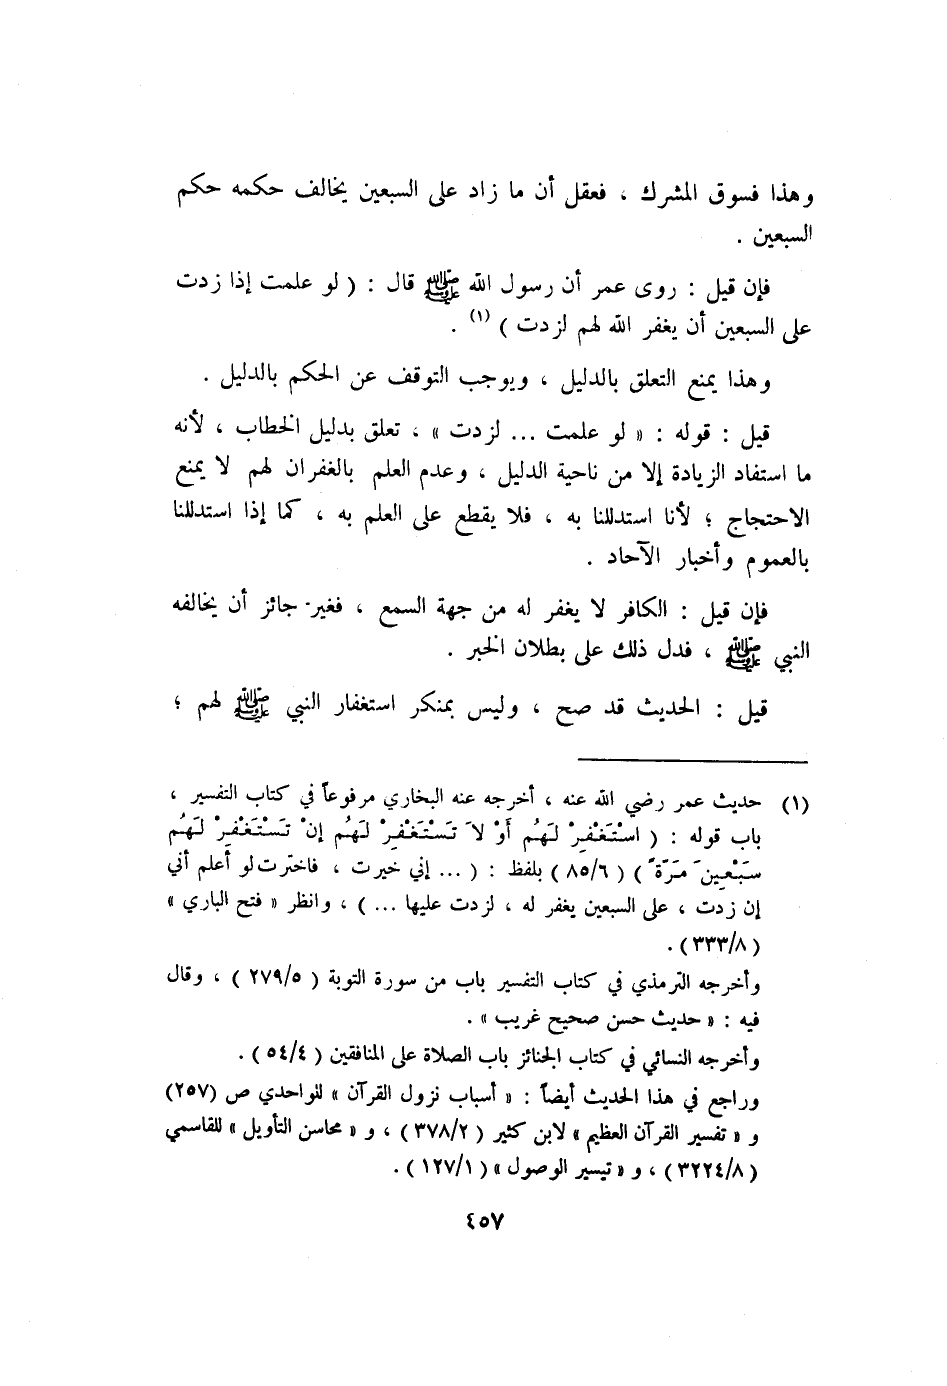 وهذا فسوق المشرك ، فعقل أن ما زاد على السبعين يخالف حكمه حكم
السبعين .
فإن قيل : روى عمر أن رسول الله ﷺ قال : ( لو علمت إذا زدت
على السبعين أن يغفر الله لهم لزدت ) (١) .
وهذا يمنع التعلق بالدليل ، ويوجب التوقف عن الحكم بالدليل .
قيل : قوله : « لو علمت ... لزدت » ، تعلق بدليل الخطاب ، لأنه
ما استفاد الزيادة إلا من ناحية الدليل ، وعدم العلم بالغفران لهم لا يمنع
الاحتجاج ؛ لأنا استدللنا به ، فلا يقطع على العلم به ، كما إذا استدللنا
بالعموم وأخبار الآحاد .
فإن قيل : الكافر لا يغفر له من جهة السمع ، فغير جائز أن يخالفه
النبي ﷺ ، فدل ذلك على بطلان الخبر .
قيل : الحديث قد صح ، وليس بمنكر استغفار النبي ﷺ لهم ؛
(١) حديث عمر رضي الله عنه ، أخرجه عنه البخاري مرفوعاً في كتاب التفسير ،
باب قوله : ( اسْتَغْفِرْ لَهُم أَوْ لاَ تَسْتَغْفِرْ لَهُم إنْ تَسْتَغْفِرْ لَهُم
سَبْعِينَ مَرّةً ) ( ٨٥/٦ ) بلفظ : ( ... إني خيرت ، فاخترت لو أعلم أني
إن زدت ، على السبعين يغفر له ، لزدت عليها ... ) ، وانظر « فتح الباري »
( ٣٣٣/٨ ) .
وأخرجه الترمذي في كتاب التفسير باب من سورة التوبة ( ٢٧٩/٥ ) ، وقال
فيه : « حديث حسن صحيح غريب » .
وأخرجه النسائي في كتاب الجنائز باب الصلاة على المنافقين ( ٥٤/٤ ) .
وراجع في هذا الحديث أيضاً : « أسباب نزول القرآن » للواحدي ص (٢٥٧)
و « تفسير القرآن العظيم » لابن كثير ( ٣٧٨/٢ ) ، و « محاسن التأويل » للقاسمي
( ٣٢٢٤/٨ ) ، و « تيسير الوصول » ( ١٢٧/١ ) .
٤٥٧